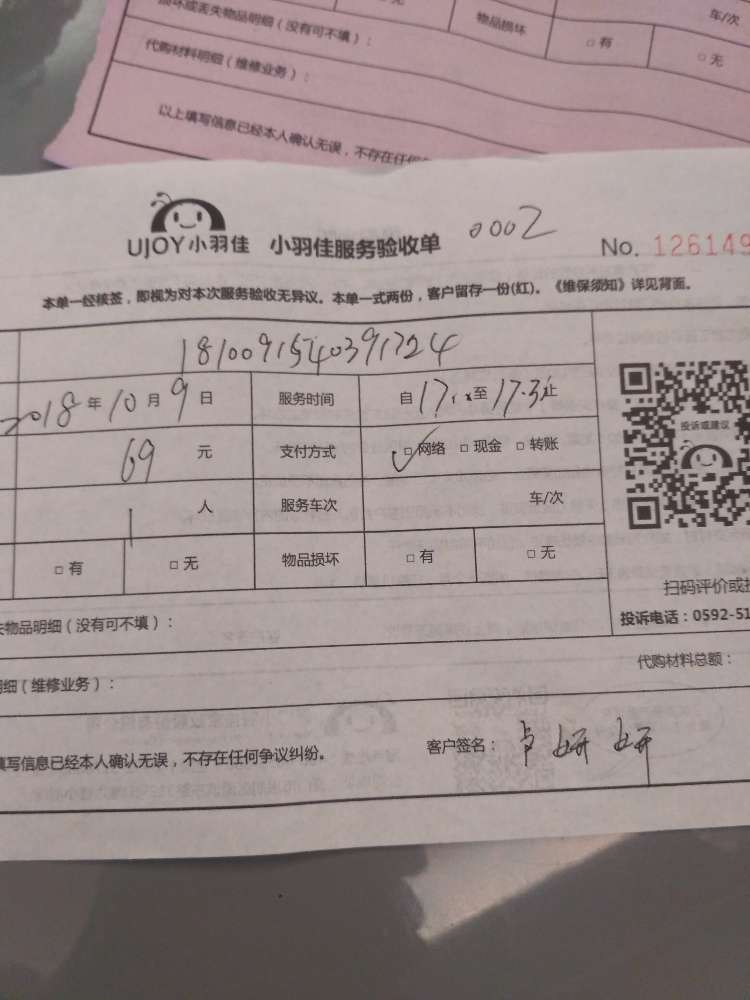 损坏或丢失物品明细（没有可不填）：
物品损坏 □ 有 □ 无
车/次
代购材料明细（维修业务）：
以上填写信息已经本人确认无误，不存在任何
UJOY小羽佳 小羽佳服务验收单 0002 No. 126149
本单一经核签，即视为对本次服务验收无异议。本单一式两份，客户留存一份(红)。《维保须知》详见背面。
1810091540391724
2018年10月9日 服务时间 自17 至17.3 止
69 元 支付方式 ✓□ 网络 □ 现金 □ 转账
投诉或建议
1 人 服务车次 车/次
□ 有 □ 无 物品损坏 □ 有 □ 无
扫码评价或
投诉电话：0592-51
失物品明细（没有可不填）：
代购材料总额：
明细（维修业务）：
填写信息已经本人确认无误，不存在任何争议纠纷。 客户签名：卢妍妍